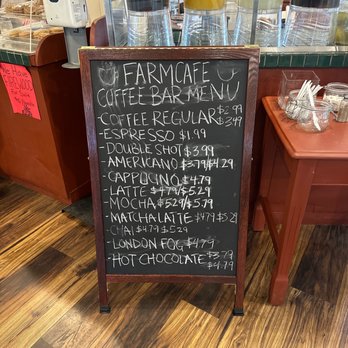 We Have
FARMCAFE
COFFEE BAR MENU
COFFEE REGULAR $2.99
$3.49
-ESPRESSO $1.99
DOUBLE SHOT $3.99
-AMERICANO $3.79/$4.29
-CAPPUCINO $4.79
-LATTE $4.79/$5.29
-MOCHA $5.29/$5.79
-MATCHA LATTE $4.79 $5.29
-CHAI $4.79 $5.29
-LONDON FOG $4.79
-HOT CHOCOLATE $3.79
$4.79